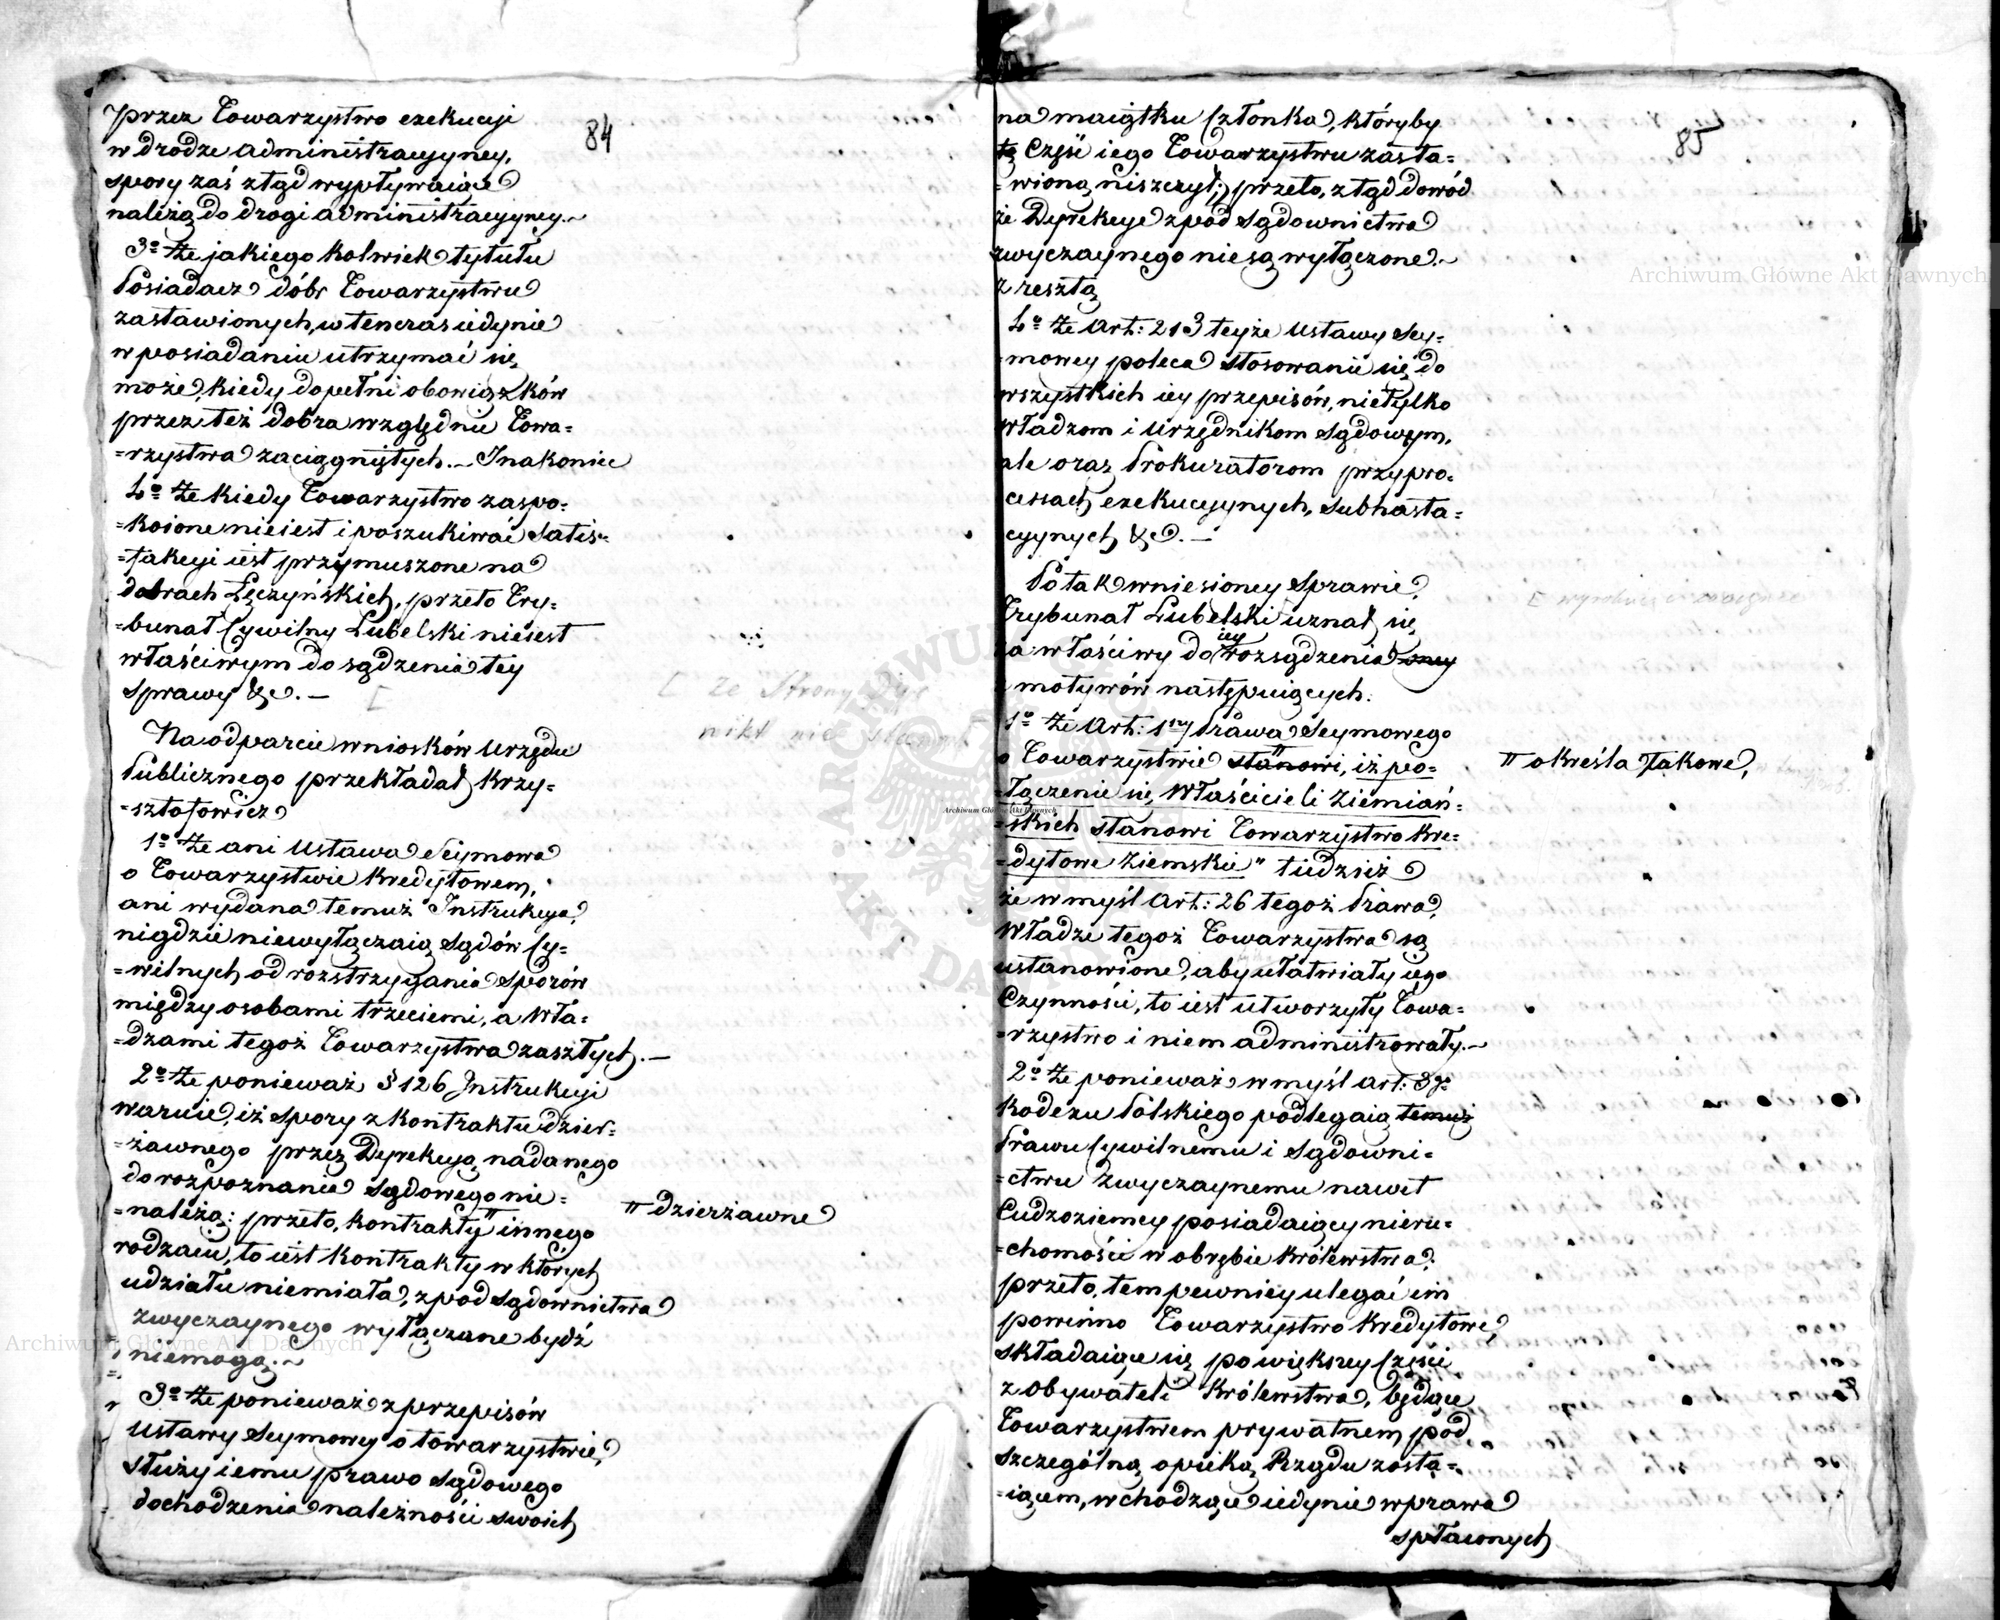 84
przez Towarzystwo exekucyi
w drodze administracyyney,
spory zaś ztąd wypływaiące
należą do drogi administracyyney.~
3º Że jakiego kolwiek tytułu
Posiadacz dóbr Towarzystwu
zastawionych, w ten czas iedynie
w posiadaniu utrzymać się
może, kiedy dopełni obowiązków
przez też dobra względnie Towa=
=rzystwa zaciągniętych.— Jnakoniec
4º Że kiedy Towarzystwo zaspo=
=koione nieiest i poszukiwać Satis=
=fakcyi iest przymuszone na
dobrach Łęczyńskich, przeto Try=
=bunał Cywilny Lubelski nieiest
właściwym do sądzenia tey
sprawy &c. —
[ ze Strony
nikt nie
Na odparcie wniosków Urzędu
Publicznego przekładał Krzy=
=sztofowicz
1º Że ani Ustawa Seymowa
o Towarzystwie Kredytowem,
ani wydana temuż Jnstrukcya,
nigdzie niewyłączaią Sądów Cy=
=wilnych od rozstrzygania Sporów
między osobami trzeciemi, a Wła=
=dzami tegoż Towarzystwa zaszłych.—
2º Że ponieważ § 126 Jnstrukcyi
waruie, iż Spory z Kontraktu dzier=
=żawnego przez Dyrekcyą nadanego
do rozpoznania Sądowego nie=
=należą: przeto, Kontrakty " innego
" dzierżawne
rodzaiu, to iest Kontrakty w których
udziału niemiała, zpod Sądownictwa
zwyczaynego wyłączane bydź
niemogą.~
3º Że ponieważ z przepisów
Ustawy Seymowey o towarzystwie,
służy iemu prawo Sądowego
dochodzenia należności swoich
85
na maiątku Członka, któryby
tę Część iego Towarzystwu zasta=
=wioną niszczył; przeto, ztąd dowód
że Dyrekcye zpod Sądownictwa
zwyczaynego nie są wyłączone.~
z resztą
4º Że Art: 213 teyże Ustawy Sey=
=mowey poleca stosowanie się do
wszystkich iey przepisów, nietylko
Władzom i Urzędnikom Sądowym,
ale oraz Prokuratorom przy pro=
cessach exekucyynych, Subhasta=
cyynych &c. —
Po tak wniesioney Sprawie,
Trybunał Lubelski uznał się
za właściwy do iey rozsądzenia oney
z motywów następuiących:
1º Że Art: 1szy Prawa Seymowego
o Towarzystwie stanowi, " iż po=
" określa takowe,
=łączenie się Właścicieli Ziemiań=
=skich stanowi Towarzystwo Kre=
=dytowe Ziemskie" tudzież
że w myśl Art: 26 tegoż Prawa,
Władze tegoż Towarzystwa są
ustanowione, aby ułatwiały iego
Czynności, to iest utworzyły Towa=
=rzystwo i niem administrowały.~
2º Że ponieważ w myśl Art: 3go
Kodexu Polskiego podlegaią temuż
Prawu Cywilnemu i Sądowni=
=ctwu Zwyczaynemu nawet
Cudzoziemcy posiadaiący nieru=
=chomości w obrębie Królewstwa;
przeto, tem pewniey ulegać im
powinno Towarzystwo Kredytowe,
składaiące się po większey Części
z Obywateli Królewstwa, będące
Towarzystwem prywatnem pod
szczególną opieką Rządu zosta=
=iącem, wchodzące iedynie w prawa
spławnych
Archiwum Główne Akt Dawnych
Archiwum Główne Akt Dawnych
Archiwum Główne Akt Dawnych
ARCHIWUM GŁÓWNE · AKT DAWNYCH